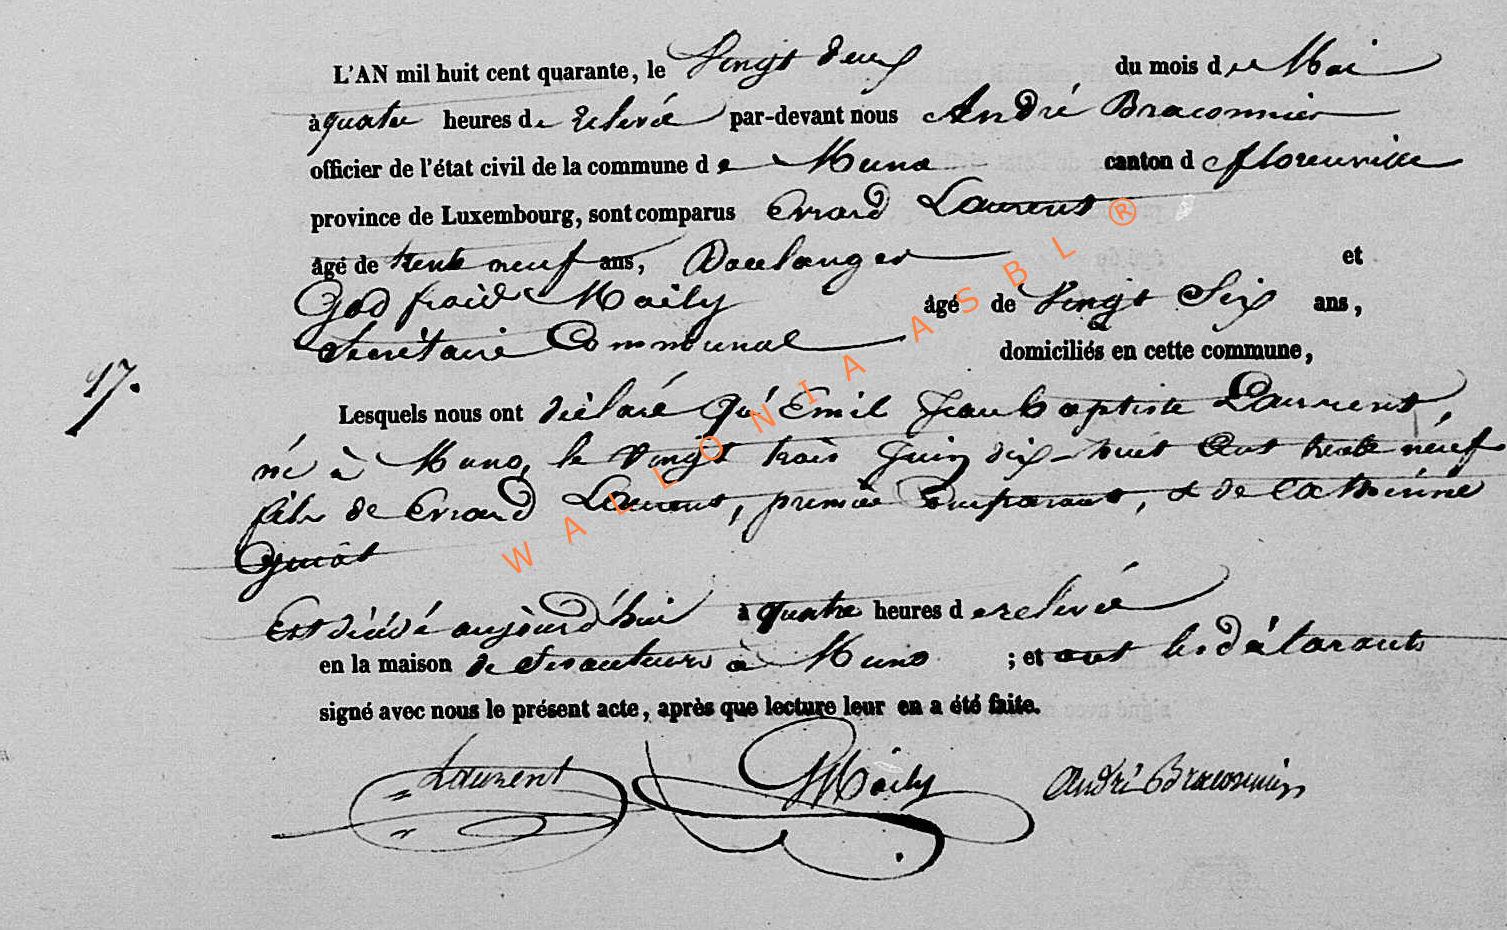 L'AN mil huit cent quarante, le Vingt deux du mois de Mai
à quatre heures de relevée par-devant nous André Braconnier
officier de l'état civil de la commune de Muno canton d Florenville
province de Luxembourg, sont comparus Errard Laurent
âgé de trente neuf ans, Boulanger et
Godfroid Maily âgé de Vingt Six ans,
Secrétaire Communal domiciliés en cette commune,
17.
Lesquels nous ont déclaré qu'Emil Jean baptiste Laurent,
né à Muno, le vingt trois Juin dix-huit cent trente neuf
fils de Errard Laurent, premier Comparant, & de Catherinne
est décédé aujourd'hui à quatre heures de relevée
en la maison de Ses auteurs à Muno ; et ont les déclarants
signé avec nous le présent acte, après que lecture leur en a été faite.
Laurent GMaily André Braconnier
WALLONIA ASBL ®